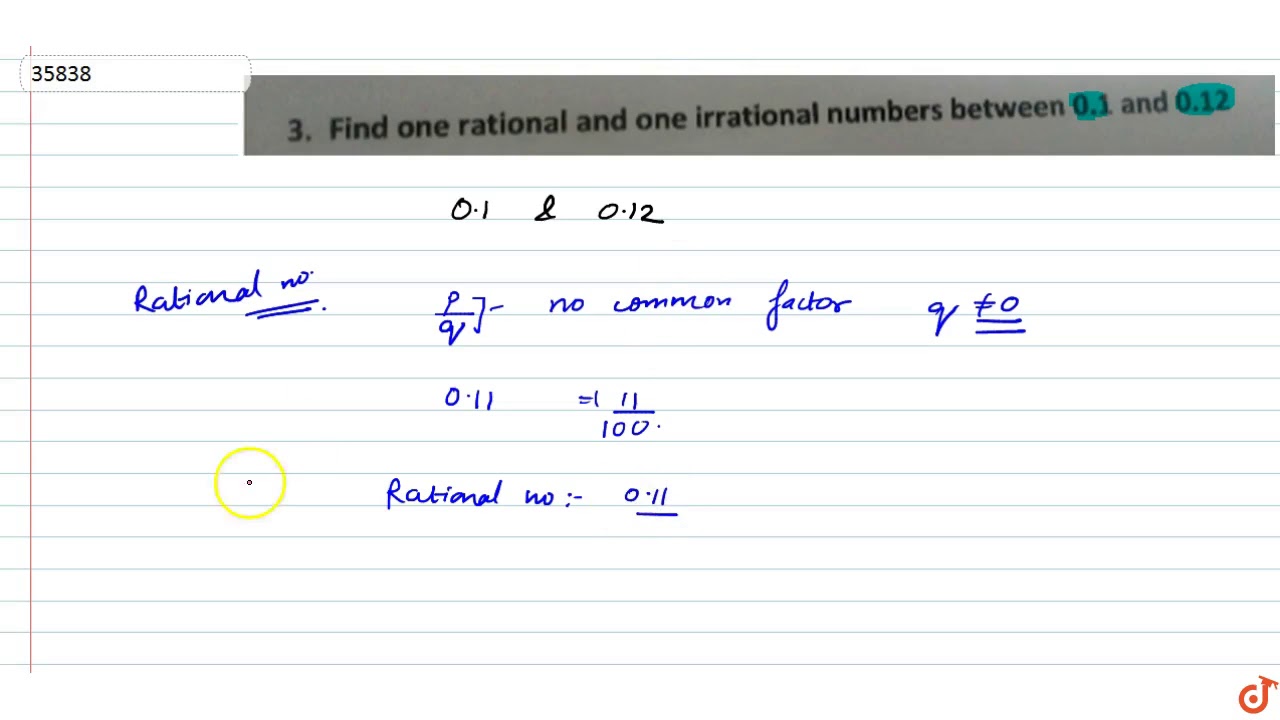 35838
3. Find one rational and one irrational numbers between 0.1 and 0.12
0.1 & 0.12
Rational no. p/q ]- no common factor q ≠0
0.11 = 11/100.
Rational no :- 0.11